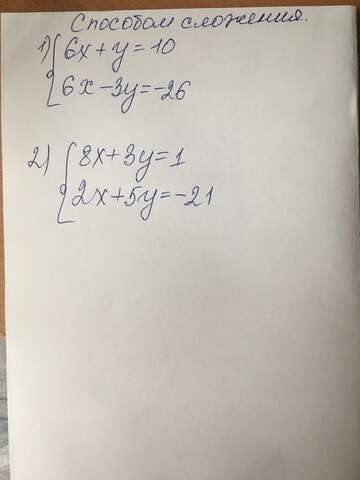 Способом сложения.
1) { 6x + y = 10
6x - 3y = -26
2) { 8x + 3y = 1
2x + 5y = -21